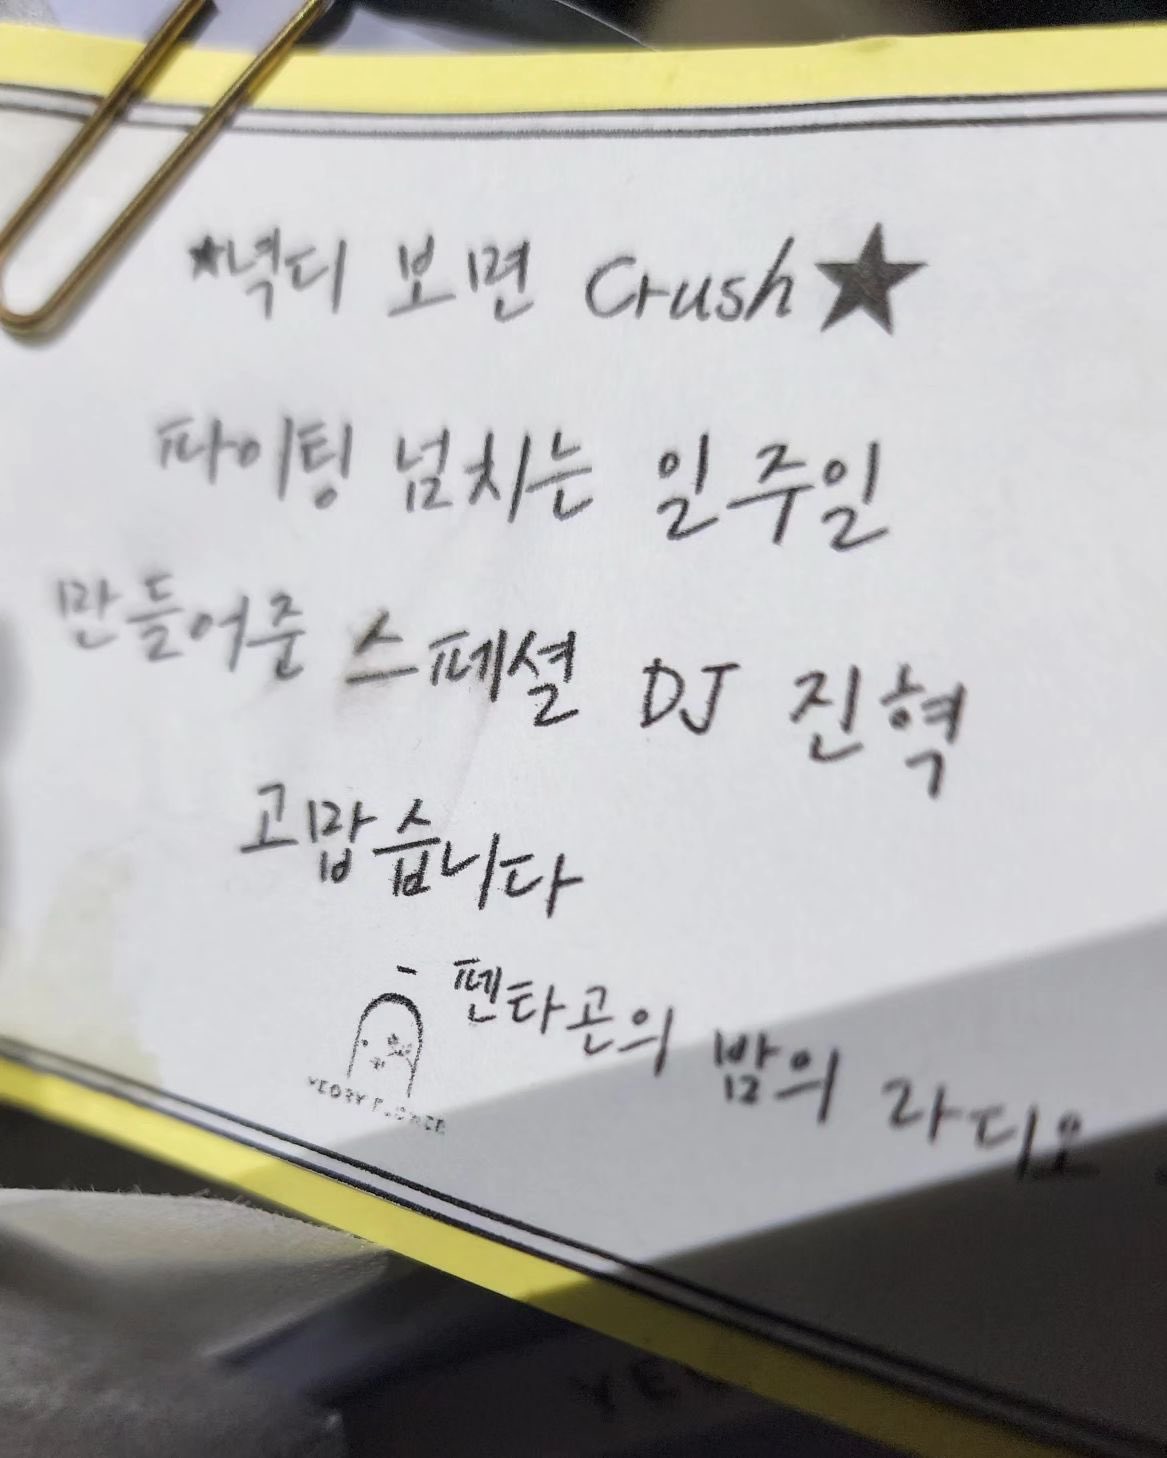 ★녁디 보면 Crush★
파이팅 넘치는 일주일
만들어준 스페셜 DJ 진혁
고맙습니다
펜타곤의 밤의 라디오
YEORY FLOWER